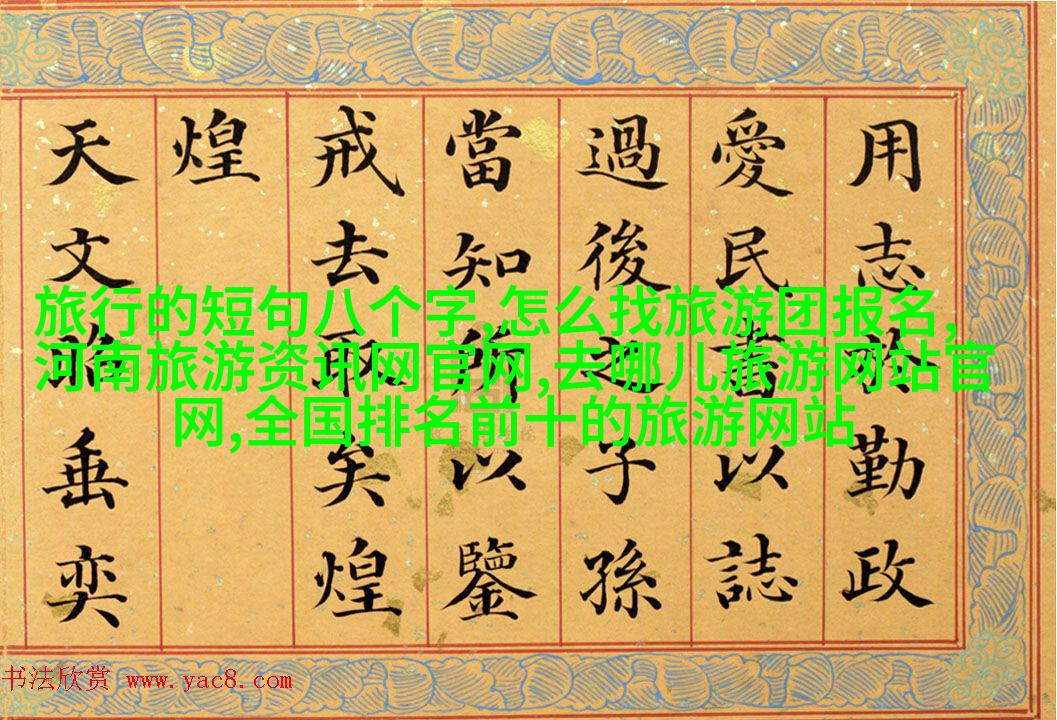 用志於勤政
愛民書以誌
過後之子孫
當知所以鑒
戒去取矣煌
煌
天文昭垂奕
旅行的短句八个字,怎么找旅游团报名,
河南旅游资讯网官网,去哪儿旅游网站官
网,全国排名前十的旅游网站
书法欣赏 www.yac8.com